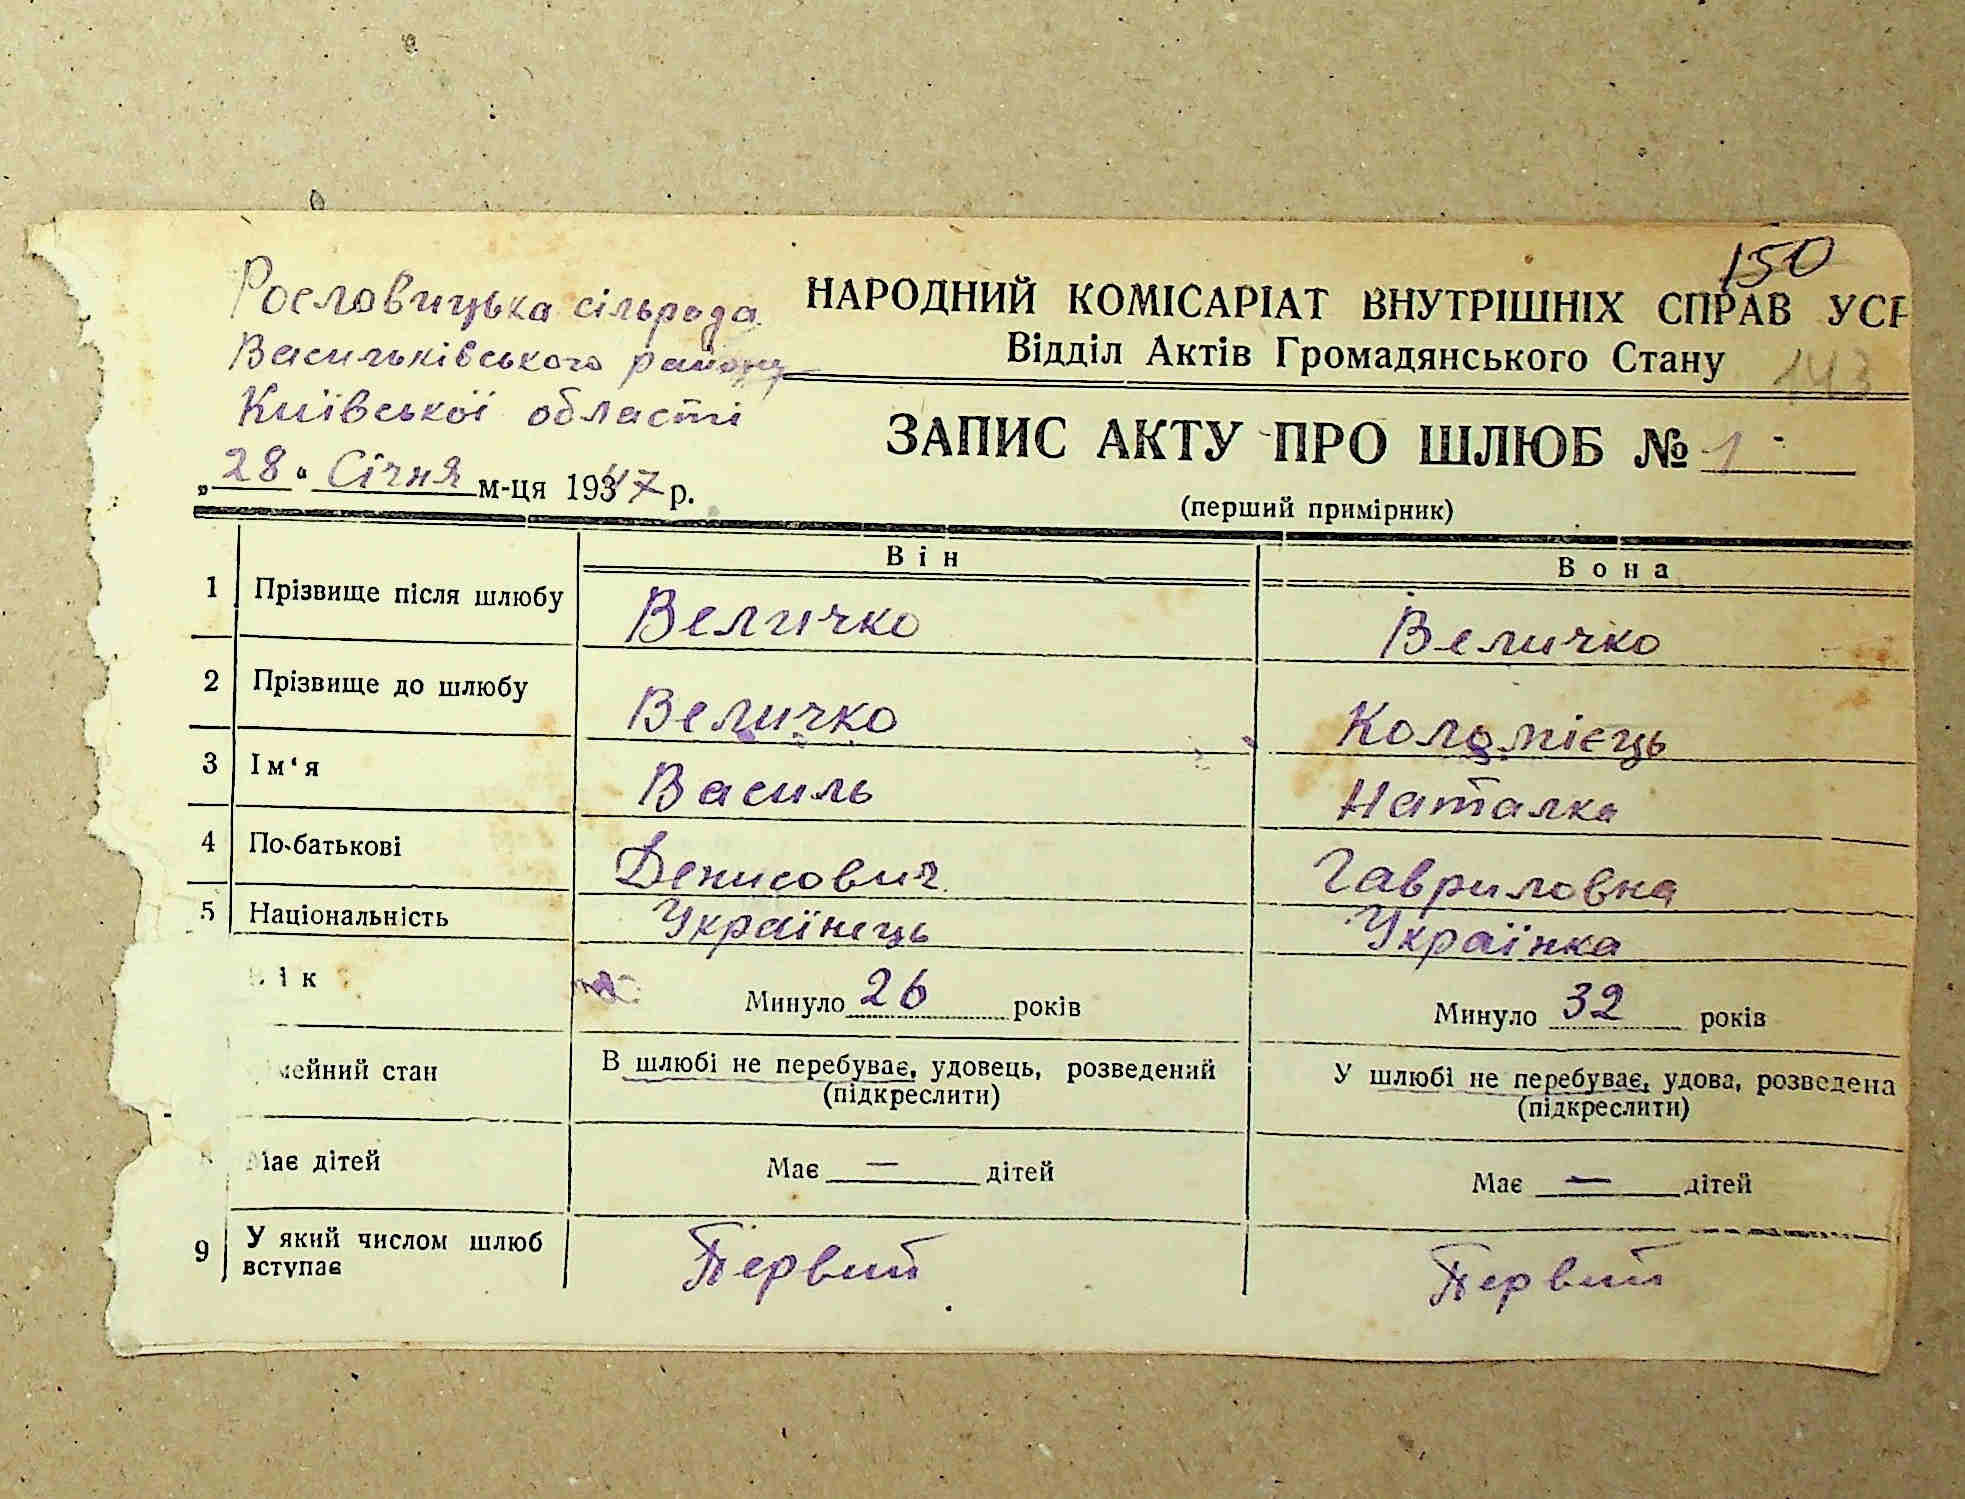 150
Рословицька сільрада
НАРОДНИЙ КОМІСАРІАТ ВНУТРІШНІХ СПРАВ УСР
Васильківського району
Відділ Актів Громадянського Стану
143
Київської області
ЗАПИС АКТУ ПРО ШЛЮБ № 1
„28“ Січня м-ця 1947 р.
(перший примірник)
Він Вона
1 Прізвище після шлюбу Величко Величко
2 Прізвище до шлюбу Величко Коломієць
3 Ім‘я Василь Наталка
4 По-батькові Денисович Гавриловна
5 Національність Українець Українка
ік Минуло 26 років Минуло 32 років
мейний стан В шлюбі не перебуває, удовець, розведений У шлюбі не перебуває, удова, розведена
(підкреслити) (підкреслити)
Має дітей Має — дітей Має — дітей
9 У який числом шлюб вступає Первий Первий